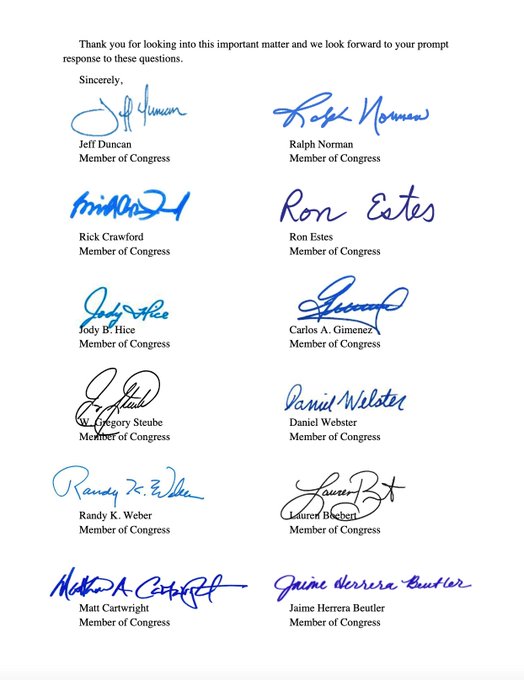 Thank you for looking into this important matter and we look forward to your prompt
response to these questions.
Sincerely,
Jeff Duncan
Jeff Duncan
Member of Congress
Ralph Norman
Ralph Norman
Member of Congress
Rick Crawford
Member of Congress
Ron Estes
Ron Estes
Member of Congress
Jody Hice
Jody B. Hice
Member of Congress
Carlos A. Gimenez
Member of Congress
W. Gregory Steube
Member of Congress
Daniel Webster
Daniel Webster
Member of Congress
Randy K. Weber
Randy K. Weber
Member of Congress
Lauren Boebert
Member of Congress
Matthew A. Cartwright
Matt Cartwright
Member of Congress
Jaime Herrera Beutler
Jaime Herrera Beutler
Member of Congress